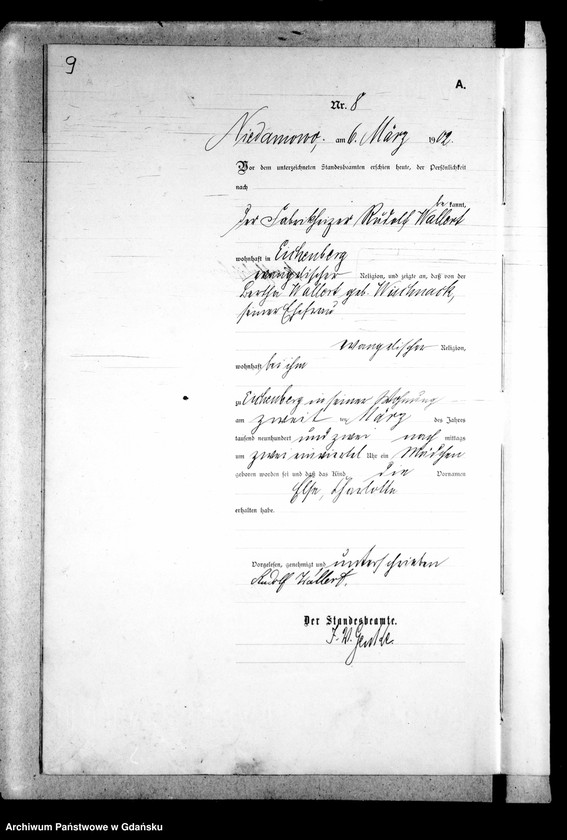 9
A.
Nr. 8
Niedamowo, am 6. März 1902.
Vor dem unterzeichneten Standesbeamten erschien heute, der Persönlichkeit
nach
be kannt,
der Fabrikheizer Rudolf Wallert
wohnhaft in Eichenberg
evangelischer Religion, und zeigte an, daß von der
Bertha Wallert geb. Wischnack,
seiner Ehefrau
evangelischer Religion,
wohnhaft bei ihm
zu Eichenberg in seiner Wohnung
am zweiten März des Jahres
tausend neunhundert und zwei nach mittags
um zwei einviertel Uhr ein Mädchen
geboren worden sei und daß das Kind die Vornamen
Else, Charlotte
erhalten habe.
Vorgelesen, genehmigt und unterschrieben
Rudolf Wallert.
Der Standesbeamte.
J. V.
Archiwum Państwowe w Gdańsku